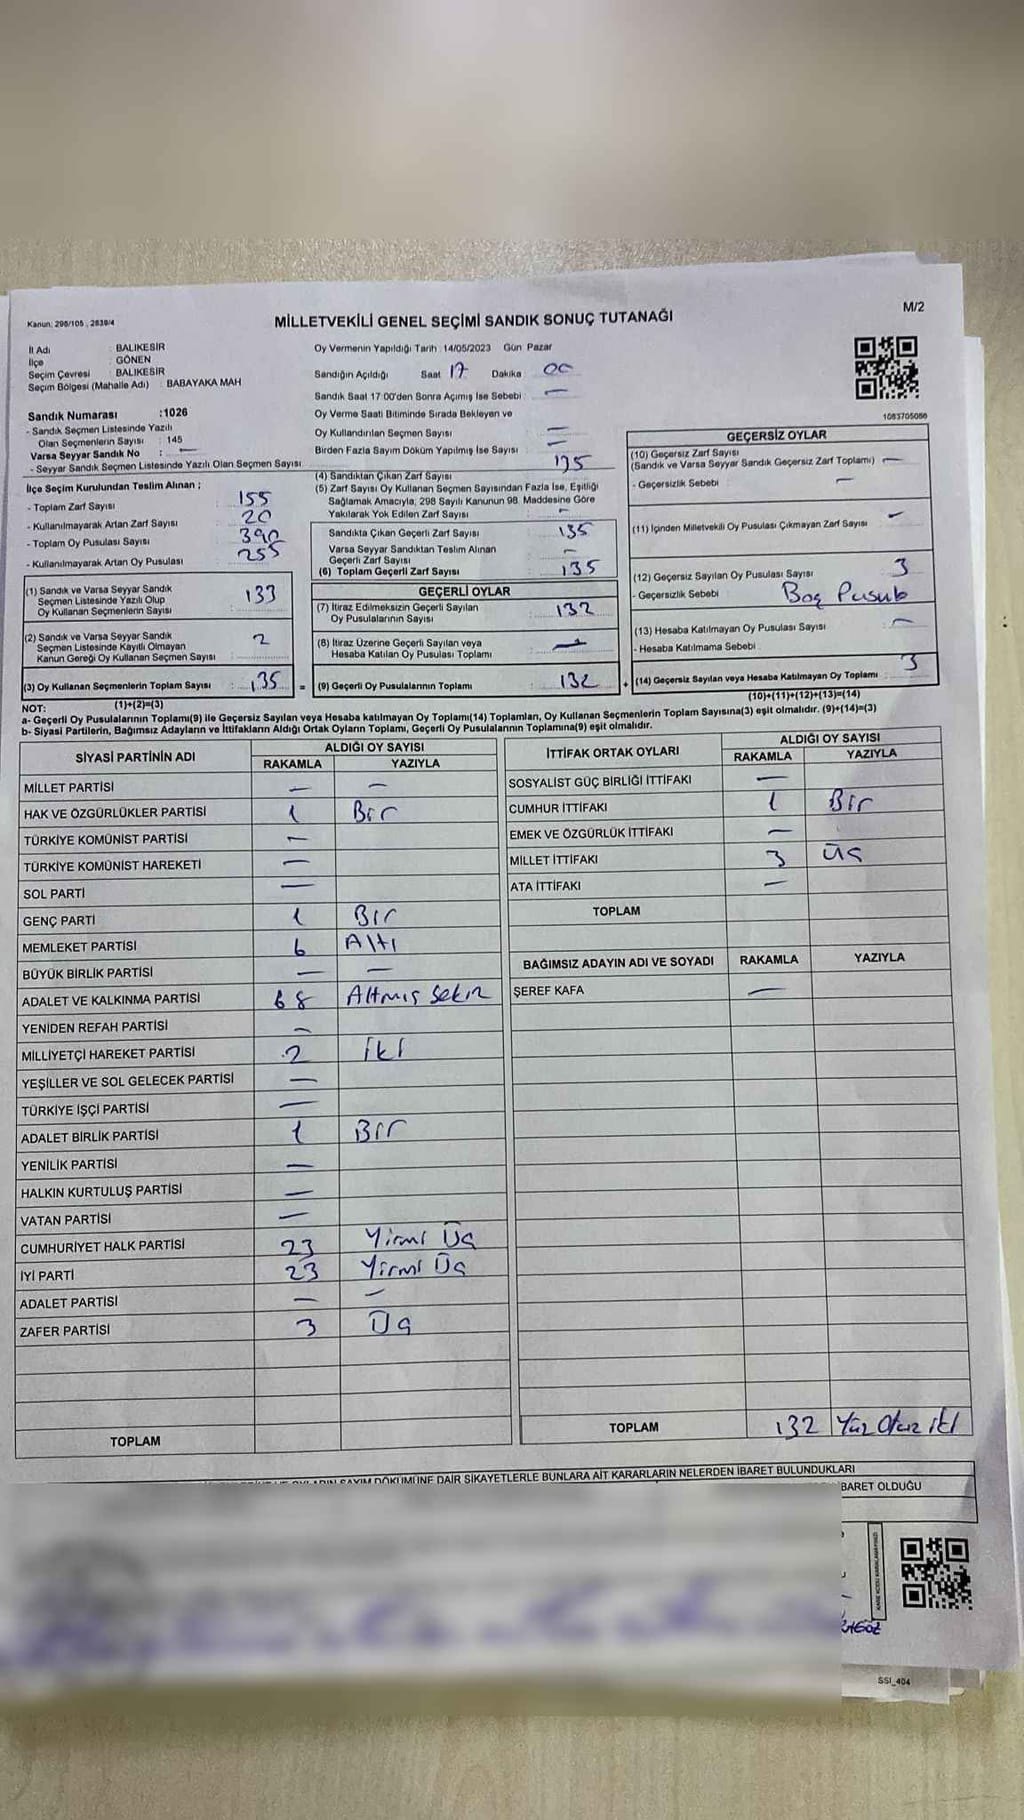 Kanun: 298/105 , 2839/4
MİLLETVEKİLİ GENEL SEÇİMİ SANDIK SONUÇ TUTANAĞI
M/2
İl Adı : BALIKESİR
İlçe : GÖNEN
Seçim Çevresi : BALIKESİR
Seçim Bölgesi (Mahalle Adı) : BABAYAKA MAH
Sandık Numarası :1026
- Sandık Seçmen Listesinde Yazılı
Olan Seçmenlerin Sayısı : 145
Varsa Seyyar Sandık No : —
- Seyyar Sandık Seçmen Listesinde Yazılı Olan Seçmen Sayısı
İlçe Seçim Kurulundan Teslim Alınan ;
- Toplam Zarf Sayısı : 155
- Kullanılmayarak Artan Zarf Sayısı : 20
- Toplam Oy Pusulası Sayısı : 390
- Kullanılmayarak Artan Oy Pusulası : 255
(1) Sandık ve Varsa Seyyar Sandık
Seçmen Listesinde Yazılı Olup
Oy Kullanan Seçmenlerin Sayısı : 133
(2) Sandık ve Varsa Seyyar Sandık
Seçmen Listesinde Kayıtlı Olmayan
Kanun Gereği Oy Kullanan Seçmen Sayısı : 2
(3) Oy Kullanan Seçmenlerin Toplam Sayısı : 135
(1)+(2)=(3)
Oy Vermenin Yapıldığı Tarih : 14/05/2023 Gün Pazar
Sandığın Açıldığı Saat 17 Dakika 00
Sandık Saat 17:00'den Sonra Açımış İse Sebebi : —
Oy Verme Saati Bitiminde Sırada Bekleyen ve
Oy Kullandırılan Seçmen Sayısı —
Birden Fazla Sayım Döküm Yapılmış İse Sayısı : —
(4) Sandıktan Çıkan Zarf Sayısı 135
(5) Zarf Sayısı Oy Kullanan Seçmen Sayısından Fazla İse, Eşitliği
Sağlamak Amacıyla, 298 Sayılı Kanunun 98. Maddesine Göre
Yakılarak Yok Edilen Zarf Sayısı : —
Sandıkta Çıkan Geçerli Zarf Sayısı : 135
Varsa Seyyar Sandıktan Teslim Alınan
Geçerli Zarf Sayısı : —
(6) Toplam Geçerli Zarf Sayısı : 135
GEÇERLİ OYLAR
(7) İtiraz Edilmeksizin Geçerli Sayılan
Oy Pusulalarının Sayısı : 132
(8) İtiraz Üzerine Geçerli Sayılan veya
Hesaba Katılan Oy Pusulası Toplamı : —
= (9) Geçerli Oy Pusulalarının Toplamı : 132
1083705086
GEÇERSİZ OYLAR
(10) Geçersiz Zarf Sayısı
(Sandık ve Varsa Seyyar Sandık Geçersiz Zarf Toplamı) —
- Geçersizlik Sebebi : —
(11) İçinden Milletvekili Oy Pusulası Çıkmayan Zarf Sayısı —
(12) Geçersiz Sayılan Oy Pusulası Sayısı : 3
- Geçersizlik Sebebi : Boş
(13) Hesaba Katılmayan Oy Pusulası Sayısı : —
- Hesaba Katılmama Sebebi :
+ (14) Geçersiz Sayılan veya Hesaba Katılmayan Oy Toplamı : 3
(10)+(11)+(12)+(13)=(14)
NOT:
a- Geçerli Oy Pusulalarının Toplamı(9) ile Geçersiz Sayılan veya Hesaba katılmayan Oy Toplamı(14) Toplamları, Oy Kullanan Seçmenlerin Toplam Sayısına(3) eşit olmalıdır. (9)+(14)=(3)
b- Siyasi Partilerin, Bağımsız Adayların ve İttifakların Aldığı Ortak Oyların Toplamı, Geçerli Oy Pusulalarının Toplamına(9) eşit olmalıdır.
SİYASİ PARTİNİN ADI ALDIĞI OY SAYISI
RAKAMLA YAZIYLA
MİLLET PARTİSİ — —
HAK VE ÖZGÜRLÜKLER PARTİSİ 1 Bir
TÜRKİYE KOMÜNİST PARTİSİ —
TÜRKİYE KOMÜNİST HAREKETİ —
SOL PARTİ —
GENÇ PARTİ 1 Bir
MEMLEKET PARTİSİ 6 Altı
BÜYÜK BİRLİK PARTİSİ — —
ADALET VE KALKINMA PARTİSİ 68 Altmış Sekiz
YENİDEN REFAH PARTİSİ —
MİLLİYETÇİ HAREKET PARTİSİ 2 İki
YEŞİLLER VE SOL GELECEK PARTİSİ —
TÜRKİYE İŞÇİ PARTİSİ —
ADALET BİRLİK PARTİSİ 1 Bir
YENİLİK PARTİSİ —
HALKIN KURTULUŞ PARTİSİ —
VATAN PARTİSİ —
CUMHURİYET HALK PARTİSİ 23 Yirmi Üç
İYİ PARTİ 23 Yirmi Üç
ADALET PARTİSİ — —
ZAFER PARTİSİ 3 Üç
TOPLAM
İTTİFAK ORTAK OYLARI ALDIĞI OY SAYISI
RAKAMLA YAZIYLA
SOSYALİST GÜÇ BİRLİĞİ İTTİFAKI —
CUMHUR İTTİFAKI 1 Bir
EMEK VE ÖZGÜRLÜK İTTİFAKI —
MİLLET İTTİFAKI 3 Üç
ATA İTTİFAKI —
TOPLAM
BAĞIMSIZ ADAYIN ADI VE SOYADI RAKAMLA YAZIYLA
ŞEREF KAFA —
TOPLAM 132 Yüz Otuz iki
SAYIM DÖKÜMÜNE DAİR ŞİKAYETLERLE BUNLARA AİT KARARLARIN NELERDEN İBARET BULUNDUKLARI
BARET OLDUĞU
SSI_404